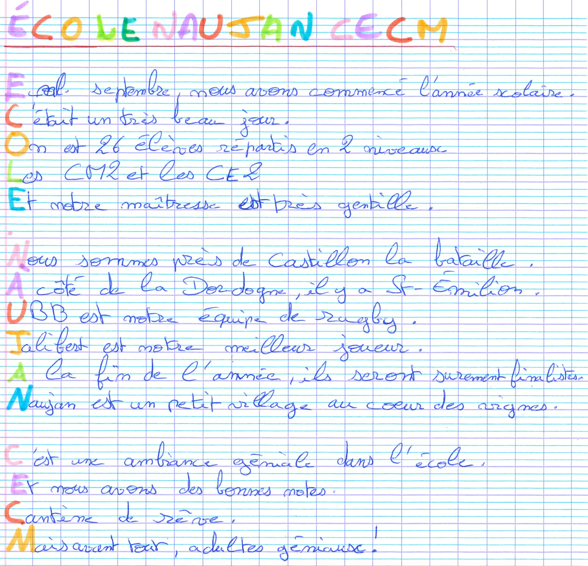 ÉCOLE NAUJAN CE CM
En septembre, nous avons commencé l'année scolaire.
C'était un très beau jour.
On est 26 élèves répartis en 2 niveaux
Les CM2 et les CE2
Et notre maîtresse est très gentille.
Nous sommes près de Castillon la bataille.
À côté de la Dordogne, il y a St-Émilion.
UBB est notre équipe de rugby.
Jalibert est notre meilleur joueur.
A la fin de l'année, ils seront surement finalistes.
Naujan est un petit village au coeur des vignes.
C'est une ambiance géniale dans l'école.
Et nous avons des bonnes notes.
Cantine de rêve.
Mais avant tout, adultes géniaux!